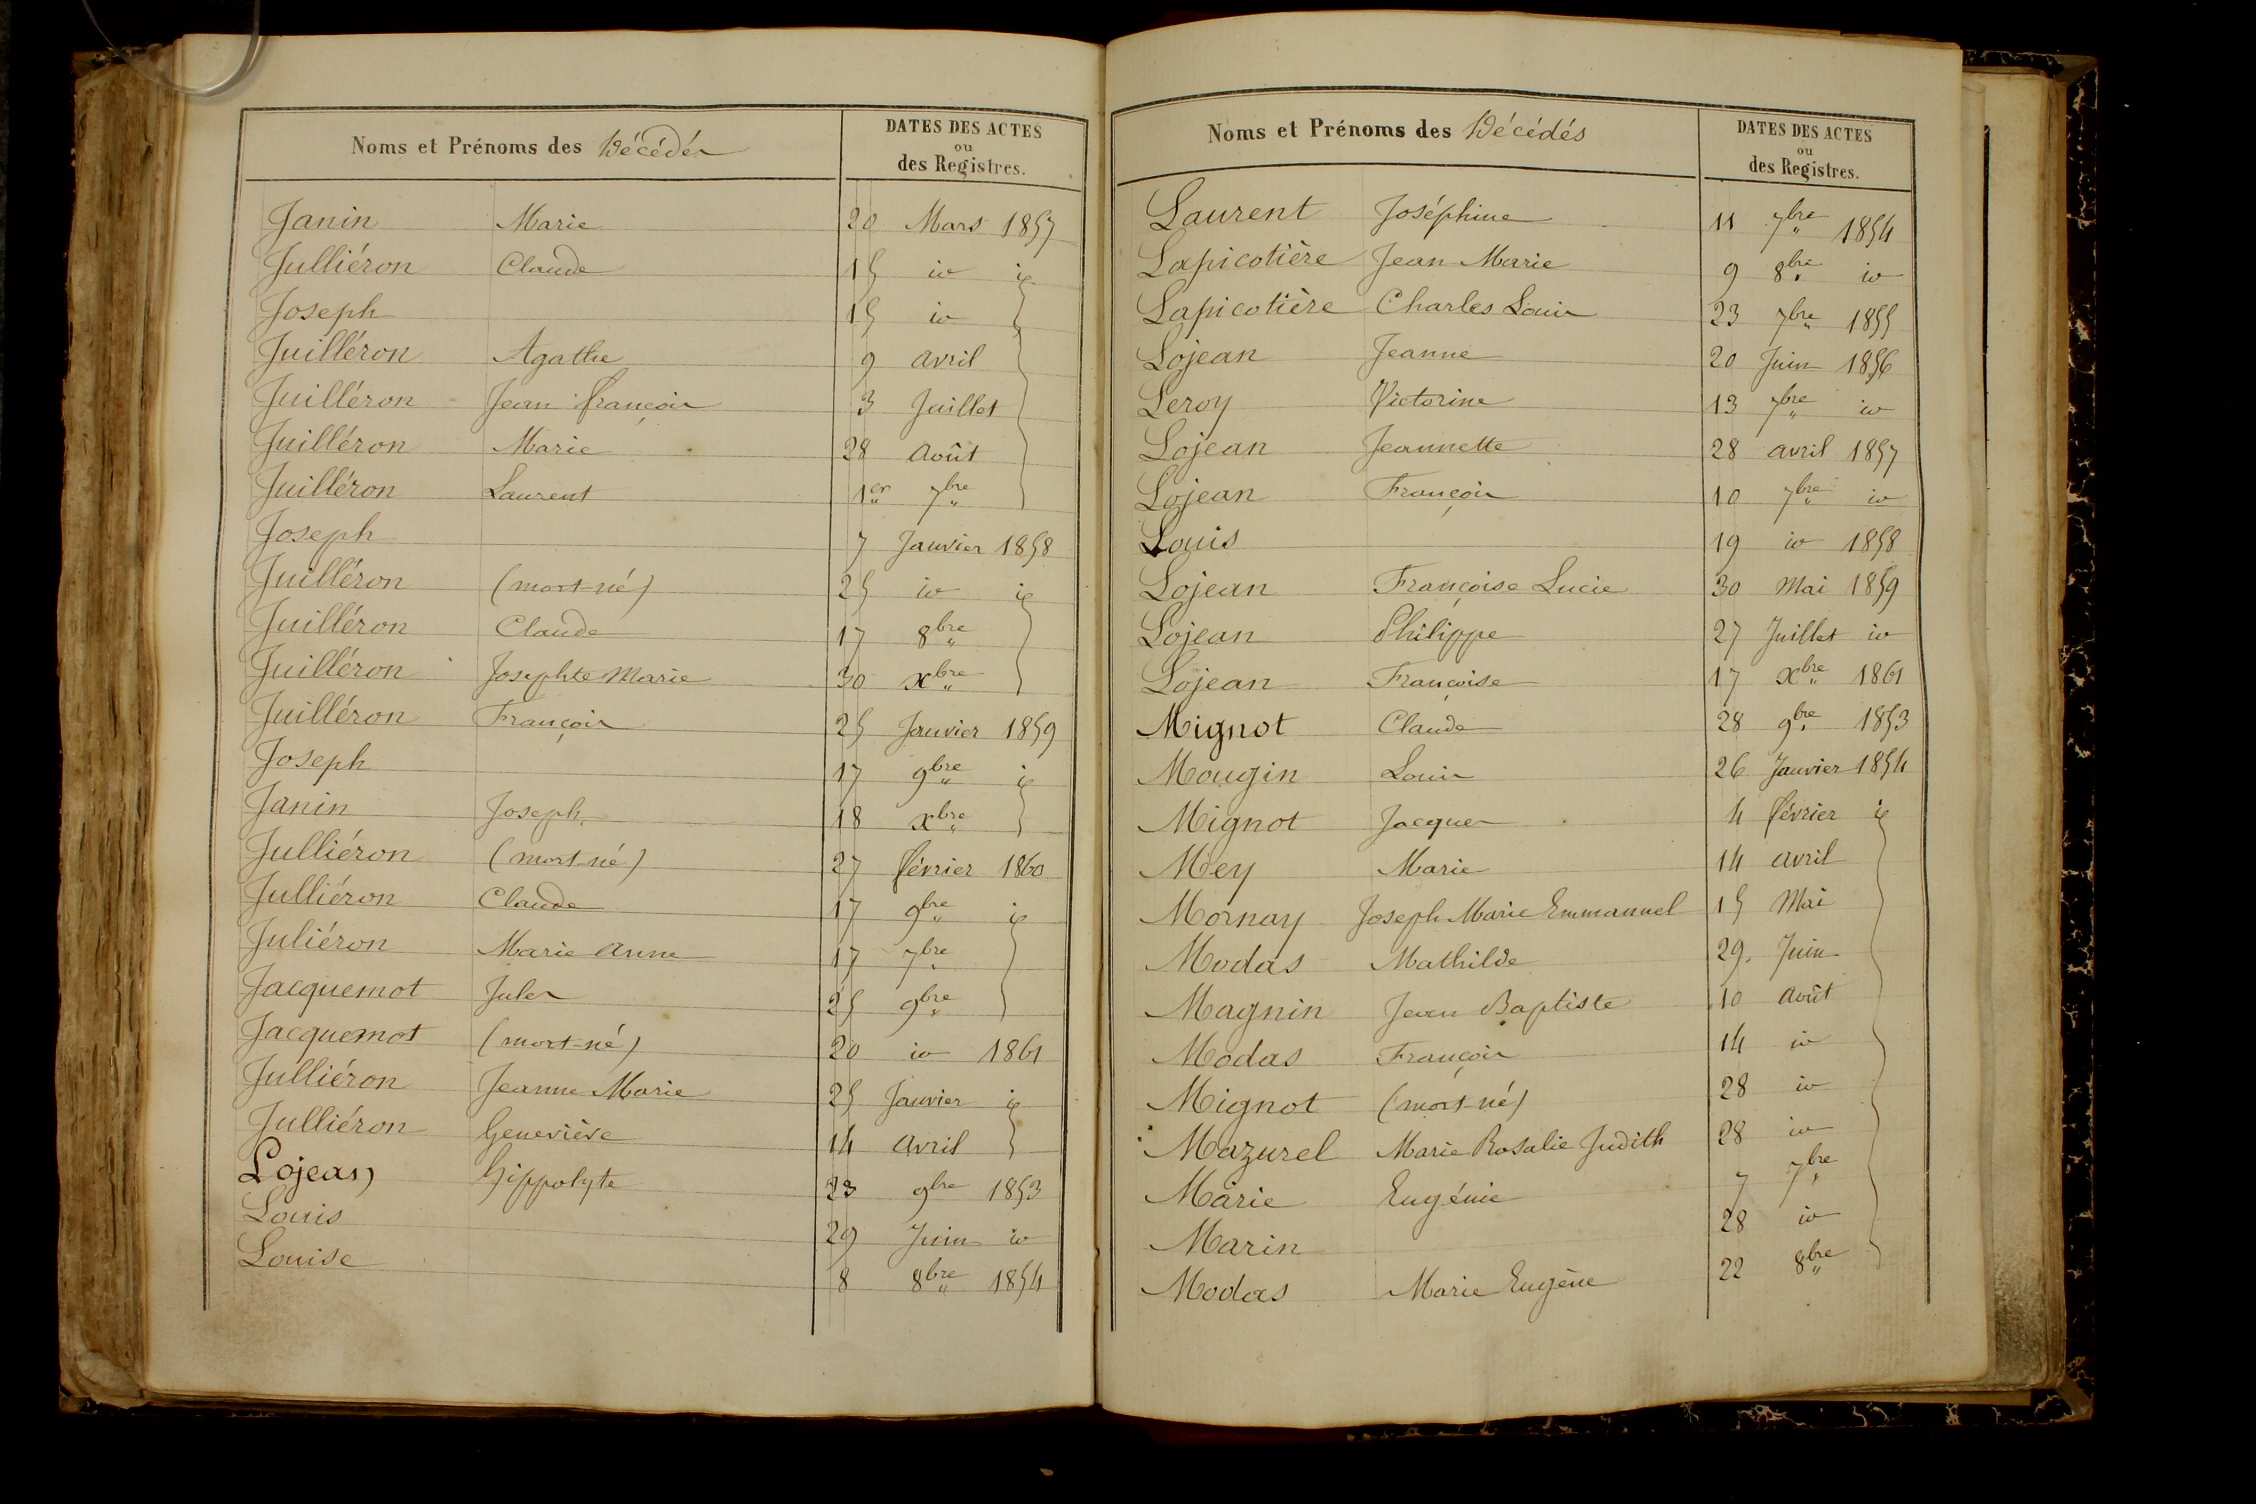 Noms et Prénoms des Décédés
DATES DES ACTES
ou
des Registres.
Janin Marie 20 Mars 1857
Julliéron Claude 15 id id
Joseph 15 id
Juilléron Agathe 9 avril
Juilléron Jean françois 3 Juillet
Juilléron Marie 28 Août
Juilléron Laurent 1er 7bre
Joseph 7 Janvier 1858
Juilléron (mort-né) 25 id id
Juilléron Claude 17 8bre
Juilléron Josephte Marie 30 xbre
Juilléron François 25 Janvier 1859
Joseph 17 9bre id
Janin Joseph 18 xbre
Julliéron (mort-né) 27 février 1860
Julliéron Claude 17 9bre id
Juliéron Marie Anne 17 7bre
Jacquemot Jules 25 9bre
Jacquemot (mort-né) 20 id 1861
Julliéron Jeanne Marie 25 Janvier id
Julliéron Geneviève 14 avril
Lojean Hippolyte 23 9bre 1853
Louis 29 Juin id
Louise 8 8bre 1854
Noms et Prénoms des Décédés
DATES DES ACTES
ou
des Registres.
Laurent Joséphine 11 7bre 1854
Lapicotière Jean Marie 9 8bre id
Lapicotière Charles Louis 23 7bre 1855
Lojean Jeanne 20 Juin 1856
Leroy Victorine 13 7bre id
Lojean Jeannette 28 avril 1857
Lojean François 10 7bre id
Louis 19 id 1858
Lojean Françoise Lucie 30 Mai 1859
Lojean Philippe 27 Juillet id
Lojean Françoise 17 xbre 1861
Mignot Claude 28 9bre 1853
Mougin Louis 26 Janvier 1854
Mignot Jacques 4 février id
Mey Marie 14 avril
Mornay Joseph Marie Emmanuel 15 Mai
Modas Mathilde 29. Juin
Magnin Jean Baptiste 10 Août
Modas François 14 id
Mignot (mort-né) 28 id
Mazurel Marie Rosalie Judith 28 id
Marie Eugénie 7 7bre
Marin 28 id
Modas Marie Eugène 22 8bre